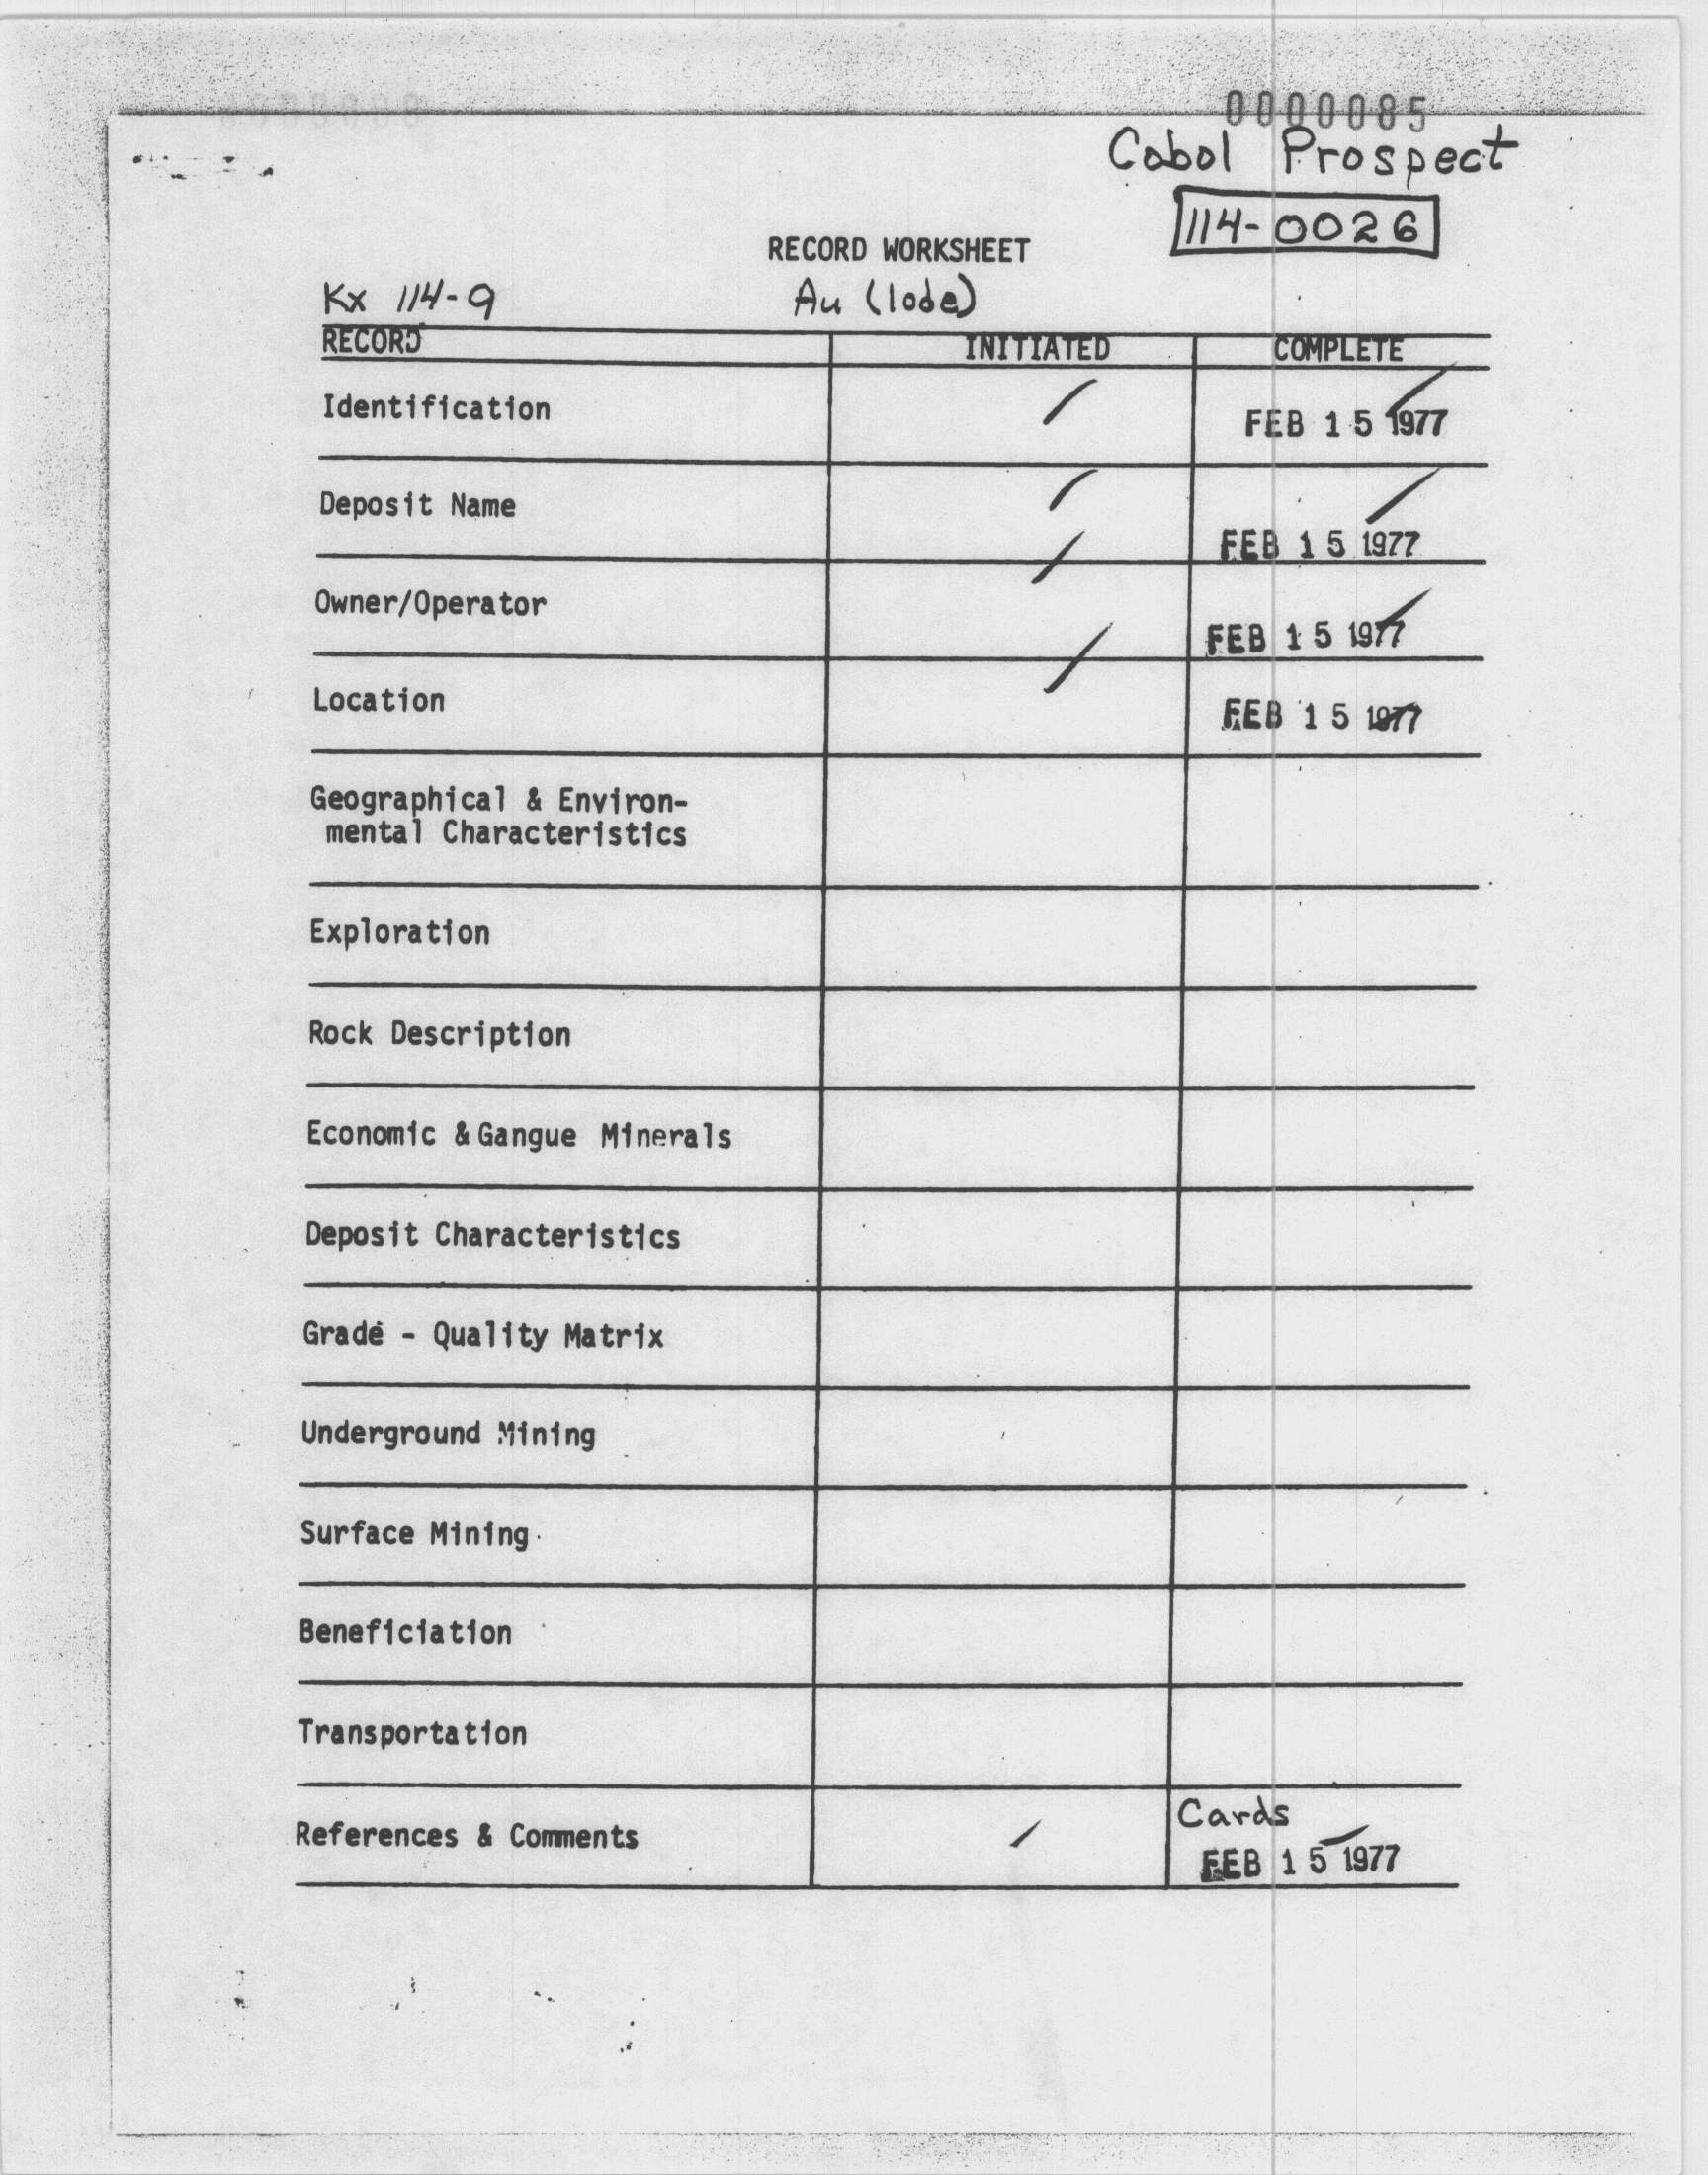 0000085
Cobol Prospect
114-0026
RECORD WORKSHEET
Kx 114-9 Au (lode)
RECORD INITIATED COMPLETE
Identification / FEB 15 1977
Deposit Name / FEB 15 1977
Owner/Operator / FEB 15 1977
Location / FEB 15 1977
Geographical & Environ-
mental Characteristics
Exploration
Rock Description
Economic & Gangue Minerals
Deposit Characteristics
Grade - Quality Matrix
Underground Mining
Surface Mining
Beneficiation
Transportation
Cards
References & Comments / FEB 15 1977